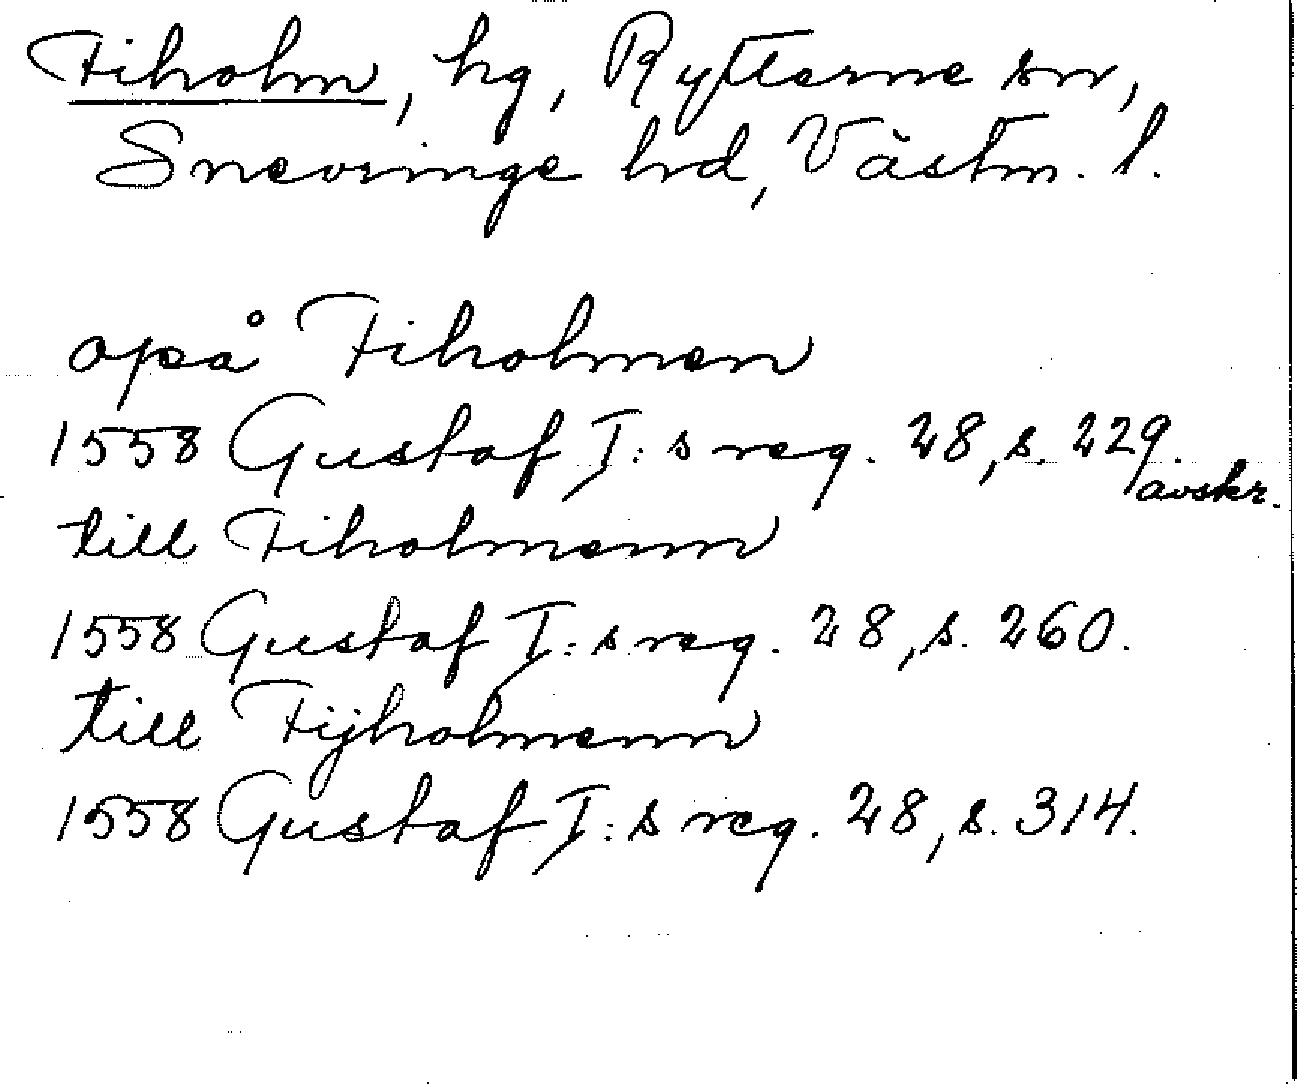 Fiholm, hg, Rytterne sn,
Snevringe hd, Västm. l.
opå Fiholmen
1558 Gustaf I:s reg. 28, s. 229.
avskr.
till Fiholmenn
1558 Gustaf I:s reg. 28, s. 260.
till Fijholmenn
1558 Gustaf I:s reg. 28, s. 314.